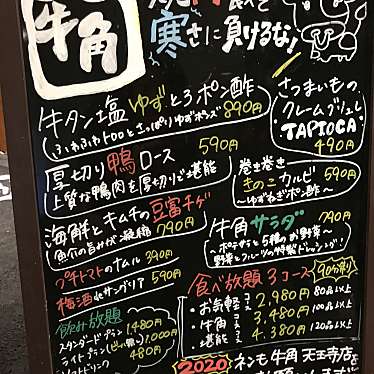 牛角
焼肉食べて
寒さに負けるな!
牛タン塩 ゆずとろポン酢
ふわふわトロロとさっぱりゆずポンズ 890円
厚切り鴨ロース 590円
上質な鴨肉を厚切りで堪能
海鮮とキムチの豆富チゲ
魚介の旨みが凝縮 790円
プチトマトのナムル 390円
梅酒deサングリア 590円
飲み放題
スタンダードプラン 1480円
ライトプラン(ビール無) 1,000円
ソフトドリンク 480円
さつまいもの、
クレームブリュレ
TAPIOCA
490円
巻き巻き
きのこカルビ 590円
~ゆずねぎポン酢~
牛角サラダ 790円
~ポテチと5種のお野菜~
野菜とフルーツの特製ドレッシング!
食べ放題3コース 90分制
・お気軽コース 2,980円 80品以上
・牛角コース 3,480円 100品以上
・堪能コース 4,380円 120品以上
2020 牛角 天王寺店